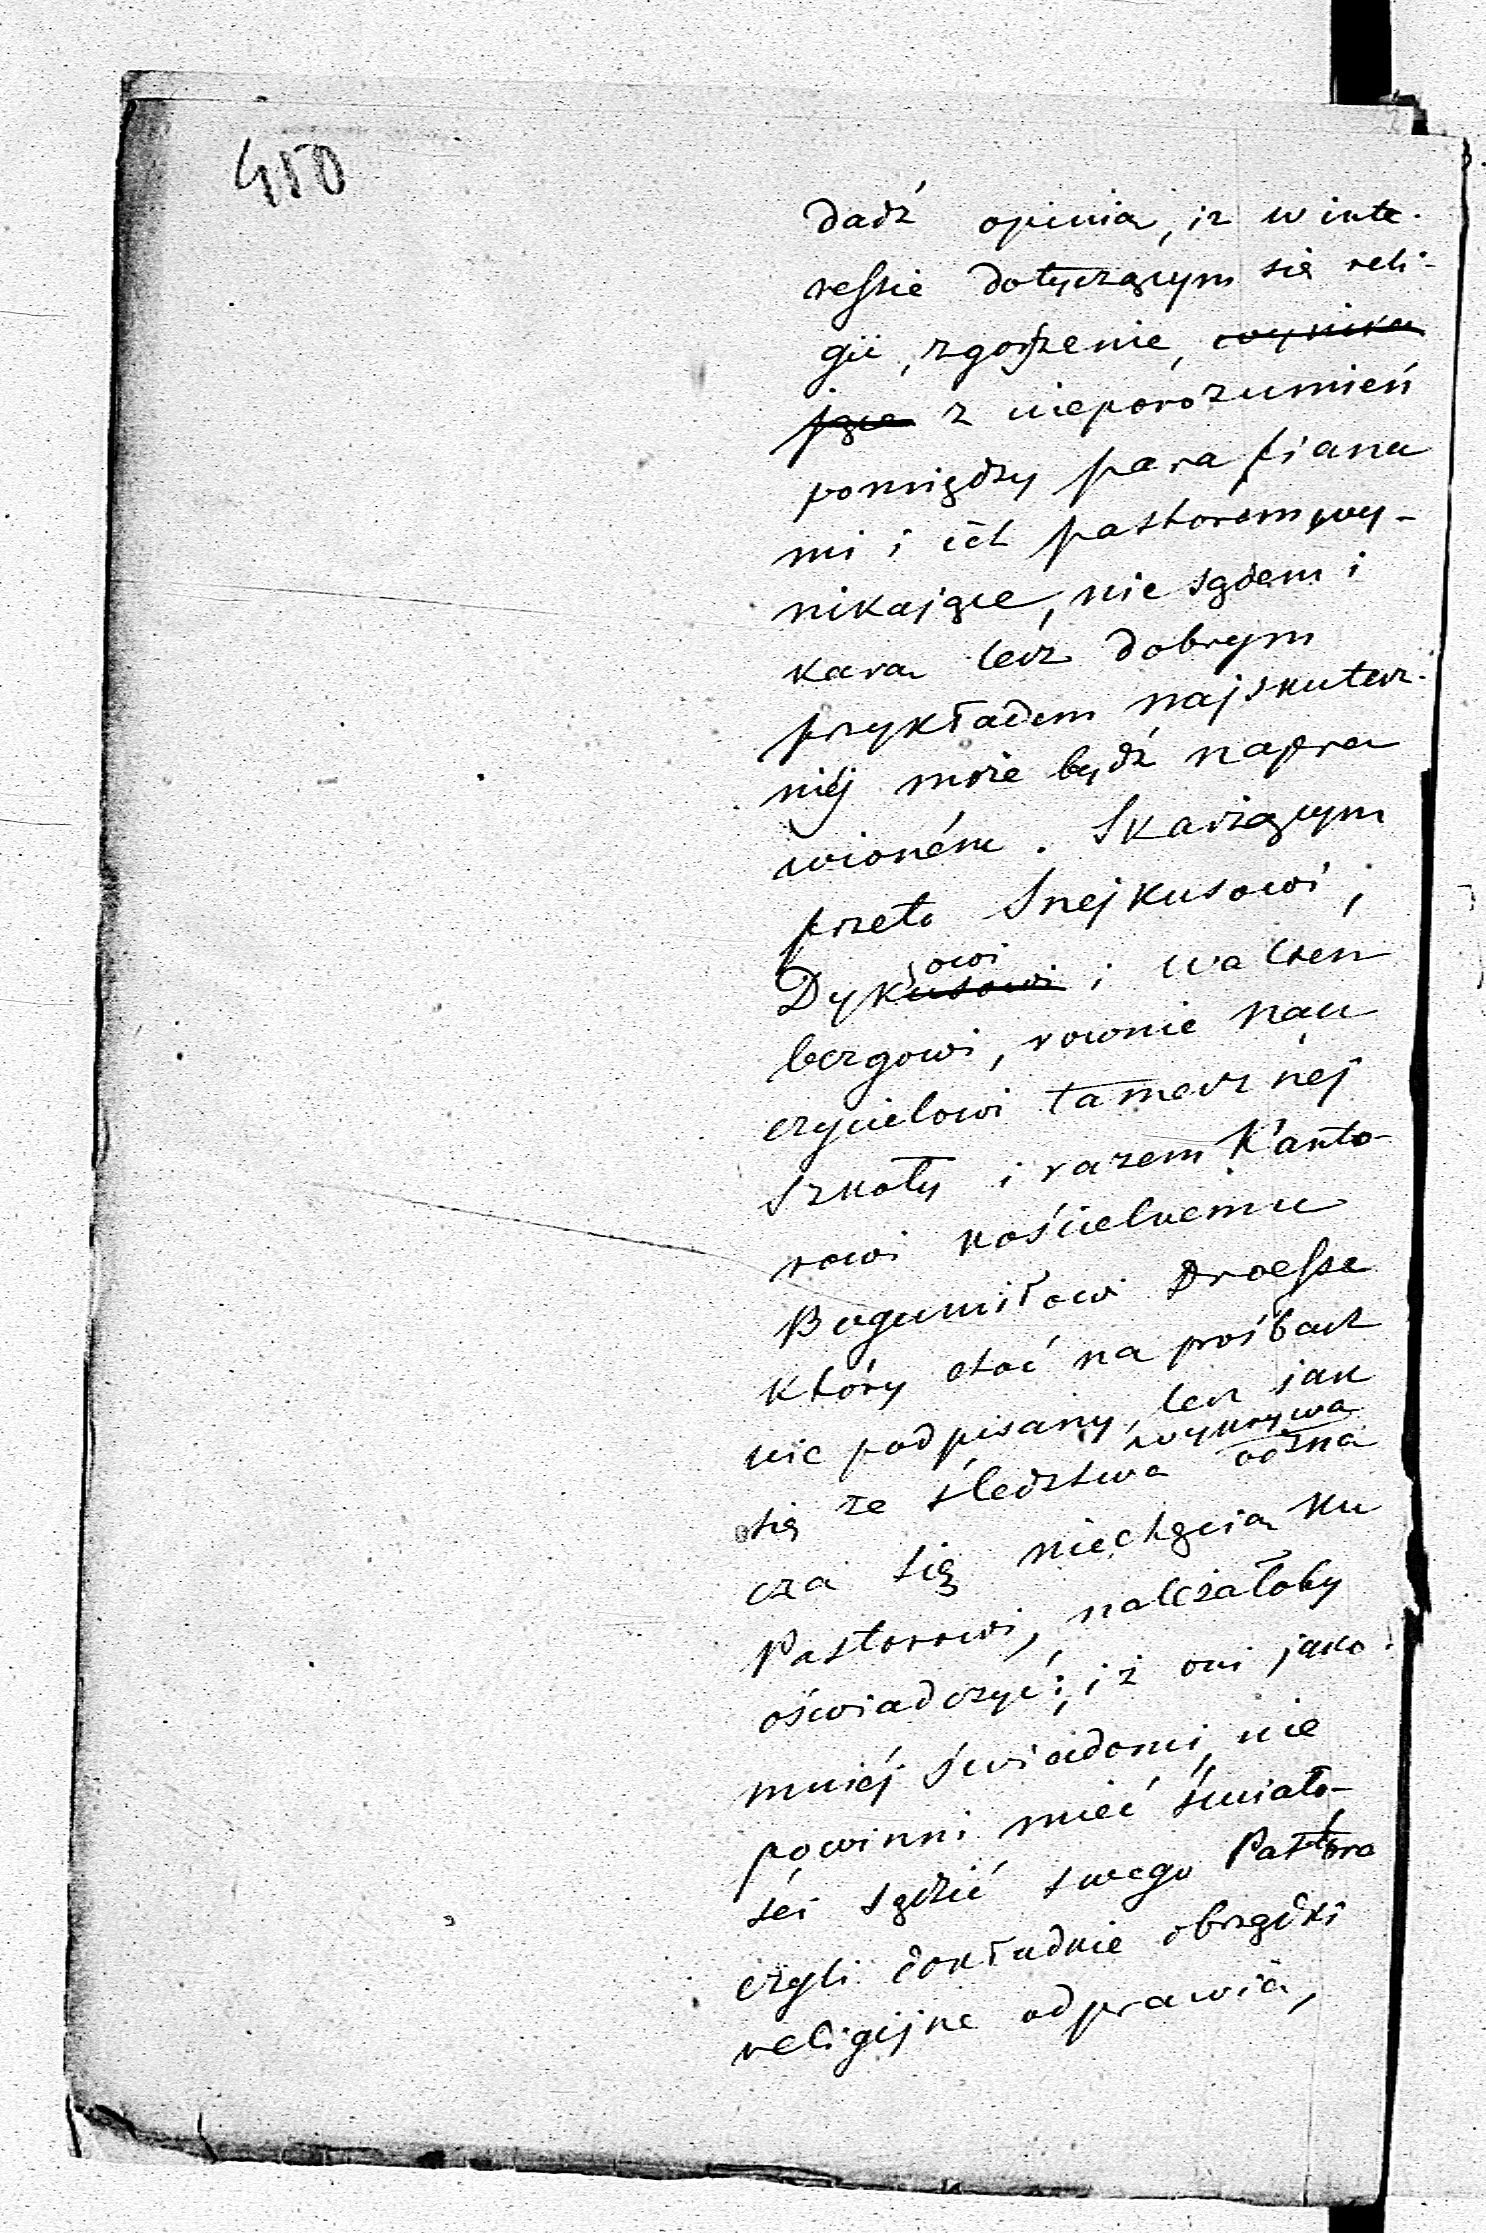 450
dadź opinia, iż w inte-
ressie dotyczącym się reli-
gii, zgorszenie, wynika
jące z nieporozumień
pomiędzy parafiana
mi i ich pastorem wy-
nikające, nie sądem i
kara lecz dobrym
przykładem najskutecz-
niéj może bydź napra
wioném. Skarżącym
przeto Snejkusowi,
owi
Dykusowi i Walsen
bergowi, rownie nau
czycielowi tamecznéj
Szkoły i razem Kanto-
rowi kościelnemu
Bogumiłowi Droesse
który choć na prośbach
nie podpisany, lecz jak
wykrywa
się ze śledztwa odzna
cza się niechęcia ku
Pastorowi, należałoby
oświadczyć; iż oni jako
mniéj świadomi, nie
powinni mieć śmiało-
ści sądzić swego Pastora
czyli dokładnie obrządki
religijne odprawia,